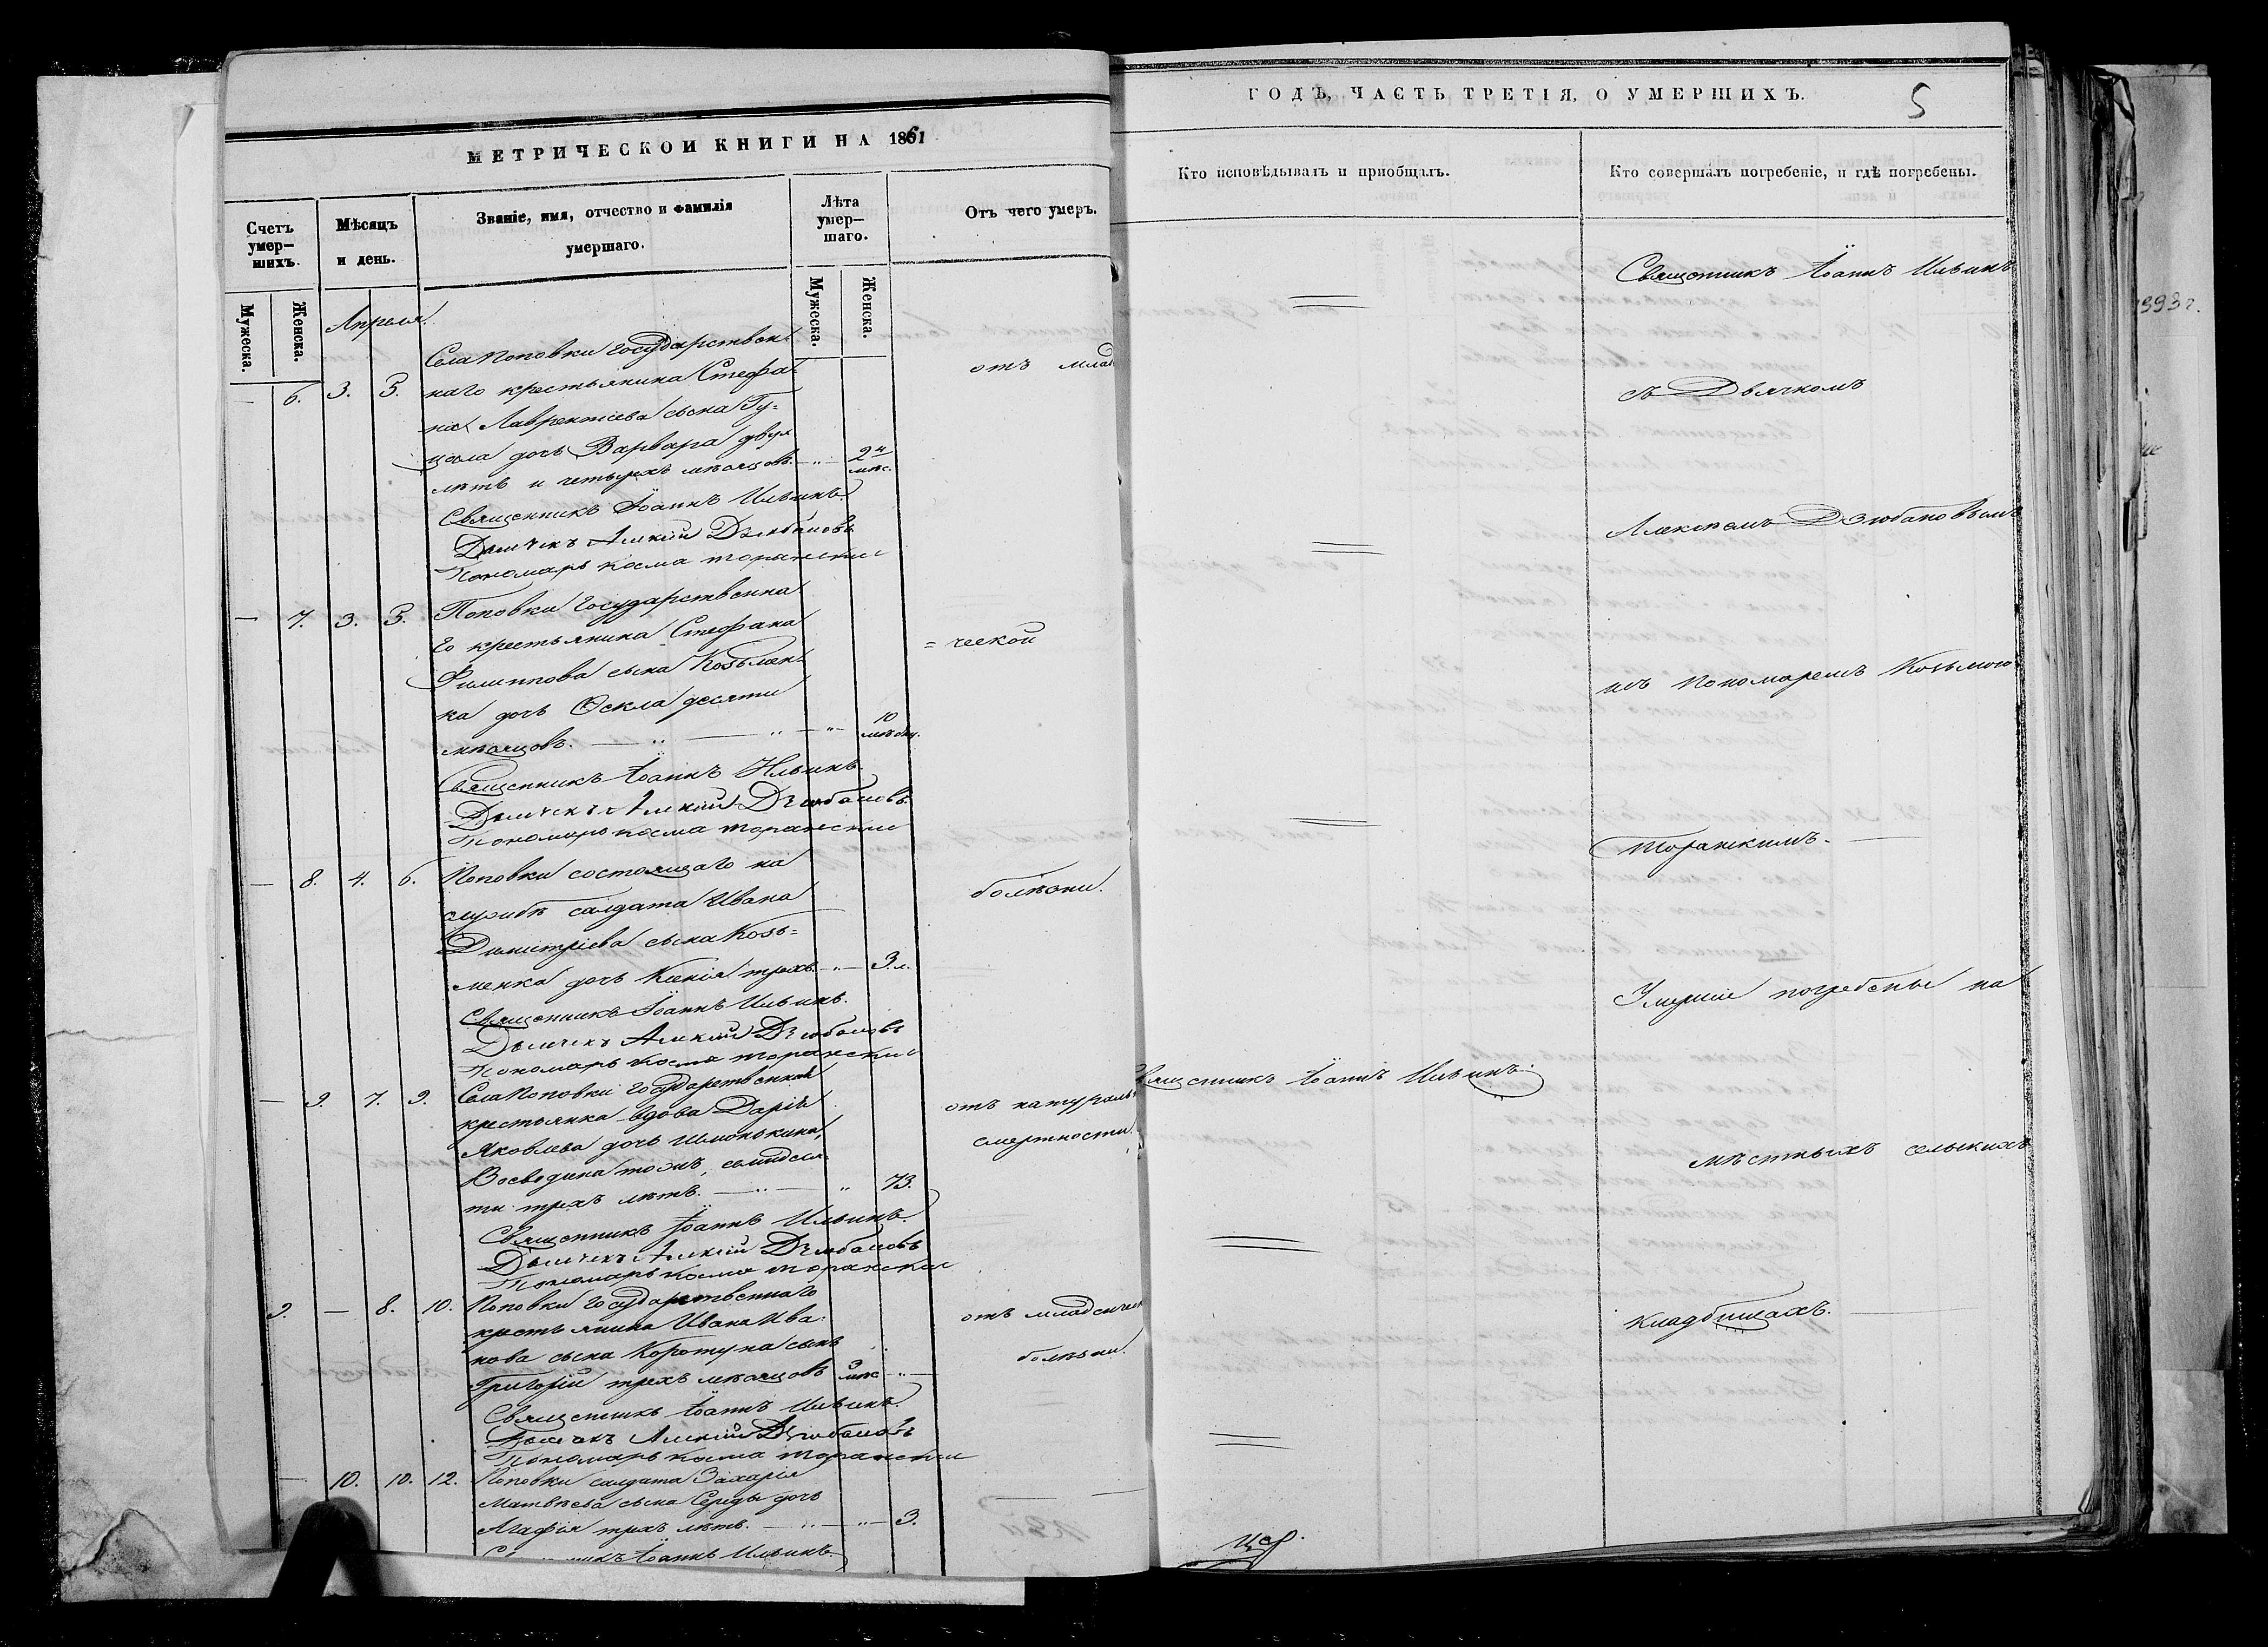 МЕТРИЧЕСКОЙ КНИГИ НА 1861
Счетъ умер-
шихъ.
Мѣсяцъ
и день.
Званіе, имя, отчество и фамилія
умершаго.
Лѣта
умер-
шаго.
Отъ чего умеръ.
Мужеска.
Женска.
Мужеска.
Женска.
Апреля.
Села Поповки Государствен-
— 6. 3. 5. наго крестьянина Стефа- отъ млад
на Лаврентіева сына Гу-
дочь Варвара двух
лѣтъ и четырехъ мѣсяцовъ. 2 4 мѣс.
Священникъ Іоаннъ Ильинъ.
Дьячекъ Алексій Дзюбановъ
Пономарь Косма Торанскій
— 7. 3. 5. Поповки Государственна
го крестьянина Стефана
Филиппова сына Козьмен- = ческой
ка дочь Фекла десяти
мѣсяцовъ. 10 мѣсяц.
Священникъ Іоаннъ Ильинъ.
Дьячекъ Алексій Дзюбановъ
Пономарь Косма Торанскій
— 8. 4. 6. Поповки состоящаго на
службѣ салдата Ивана болѣзни.
Димитріева сына Козь=
менка дочь Ксенія трехъ 3 л.
Священникъ Іоаннъ Ильинъ.
Дьячекъ Алексій Дзюбановъ
Пономарь Косма Торанскій
— 9. 7. 9. Села Поповки Государственная
крестьянка вдова Дарія отъ натураль
Яковлева дочь смертности.
тожъ, семидеся-
ти трехъ лѣтъ. 73.
Священникъ Іоаннъ Ильинъ.
Дьячекъ Алексій Дзюбановъ
Пономарь Косма Торанскій
9. — 8. 10. Поповки Государственнаго
крестьянина Ивана Ива- отъ младенчес
нова сына Коротуна сынъ болѣзни.
Григорій трехъ мѣсяцовъ 3 мѣс
Священникъ Іоаннъ Ильинъ.
Дьячекъ Алексій Дзюбановъ
Пономарь Косма Торанскій
— 10. 10. 12. Поповки салдата Захарія
Матвѣева сына Середы дочь
Агафія трехъ лѣтъ. 3.
Іоаннъ Ильинъ.
ГОДЪ, ЧАСТЬ ТРЕТІЯ, О УМЕРШИХЪ.
5
Кто исповѣдывалъ и пріобщалъ.
Кто совершалъ погребеніе, и гдѣ погребены.
Священникъ Іоаннъ Ильинъ
съ Дьячкомъ
Алексіемъ Дзюбановымъ
и Пономаремъ Козьмою
Торанскимъ.
Умершіе погребены на
Священникъ Іоаннъ Ильинъ.
мѣстныхъ сельскихъ
кладбищахъ.
1393 г.